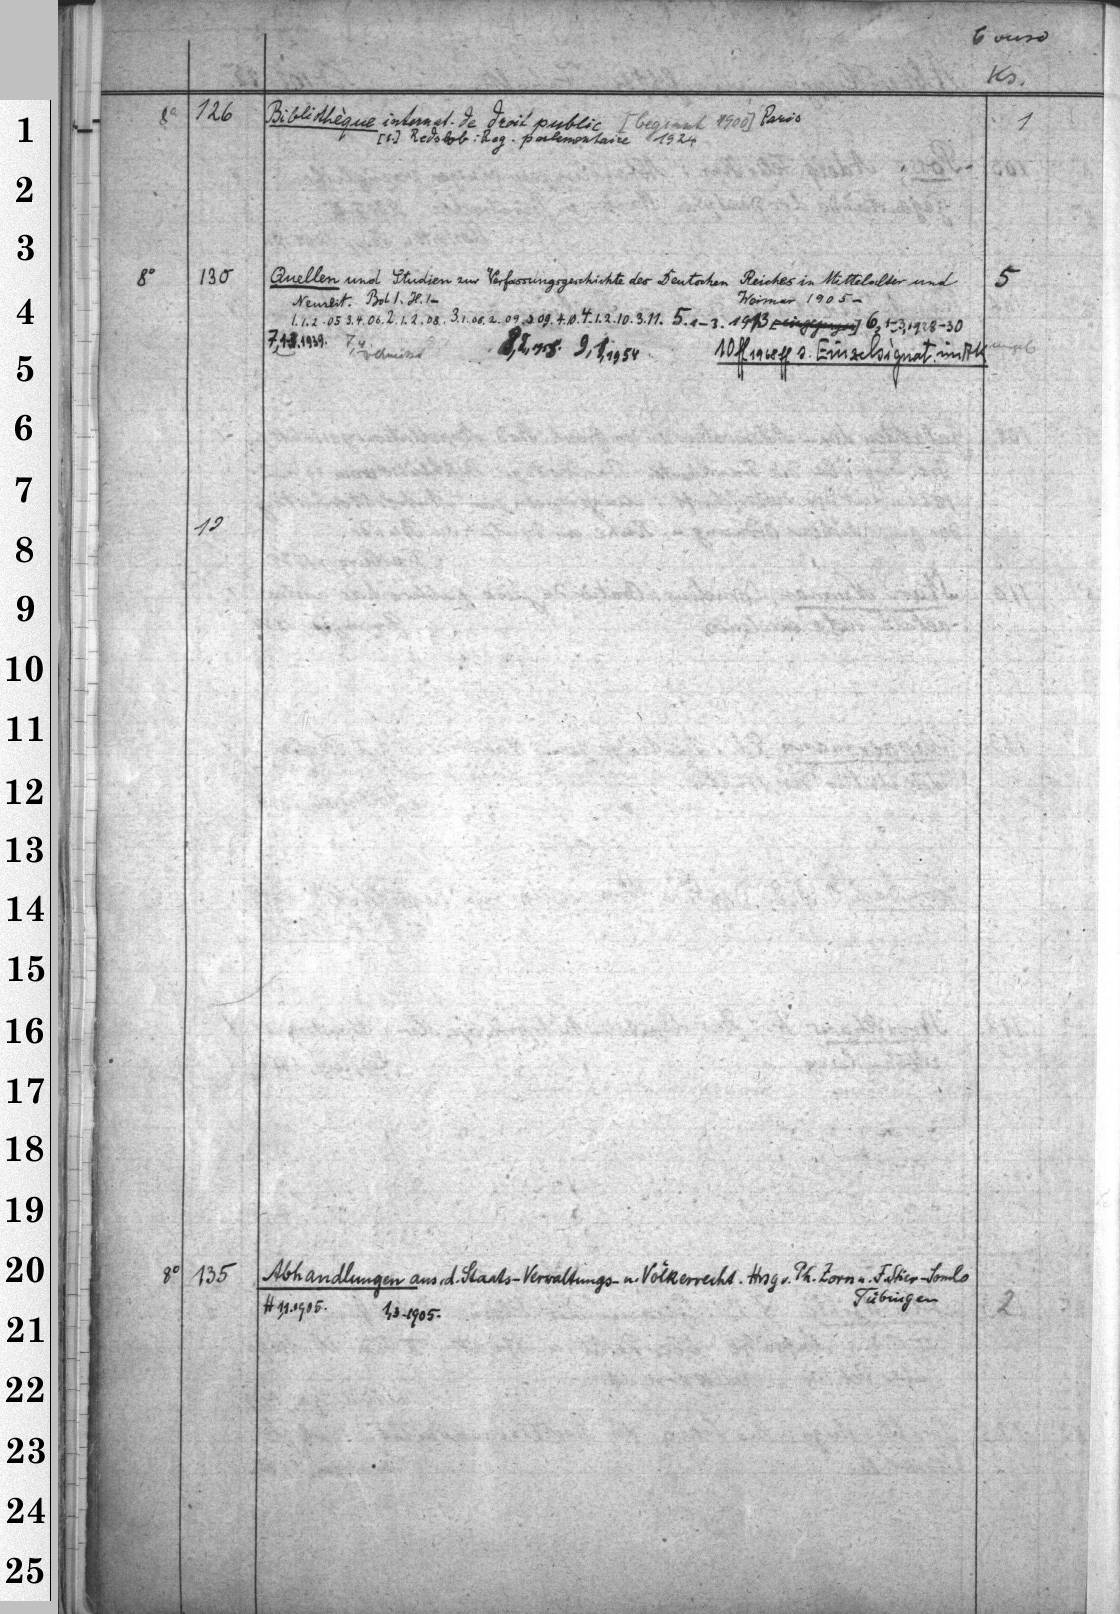 6 verso
Ks.
8° 126 Bibliothèque internat. de droit public [beginnt 1900] Paris 1
[6] Redslob: Reg. parlementaire 1924
8° 130 Quellen und Studien zur Verfassungsgeschichte des Deutschen Reiches in Mittelalter und 5
Neuzeit. Bd 1. H. 1- Weimar 1905-
1.1.2.05 3.4.06. 2.1.2.08. 3.1.08.2.09.3.09.4.10. 4.1.2.10.3.11. 5.1-3. 1913 6, 1-3, 1928-30
7,1-3.1939. 7,4 8,2,1958. 9,1,1954 10ff 1968ff s. Einzelsignat. im AK
12
8° 135 Abhandlungen aus. d. Staats-Verwaltungs- u. Völkerrecht. Hrsg v. Ph. Zorn u. F. Stier-Somlo
Tübingen 2
H 1,1.1905. 1,3-1905.
1
2
3
4
5
6
7
8
9
10
11
12
13
14
15
16
17
18
19
20
21
22
23
24
25